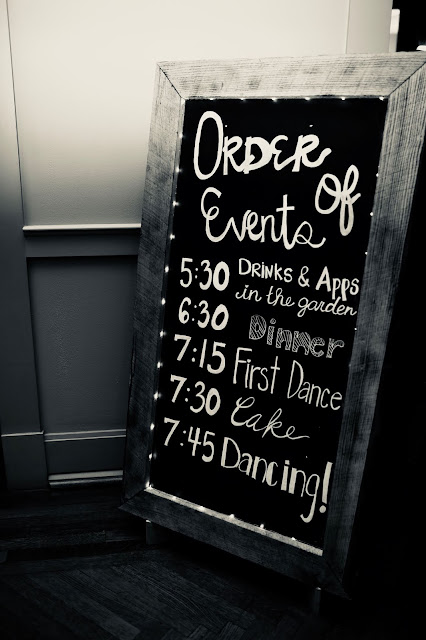 Order
of
Events
5:30 Drinks & Apps
in the garden
6:30 Dinner
7:15 First Dance
7:30 Cake
7:45 Dancing!